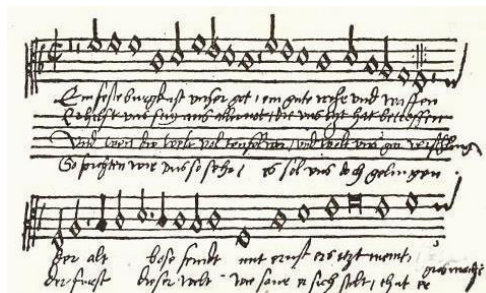 Ein feste burg ist unser got, ein gute wehr und waffen
Er hilfft uns frey aus aller not die uns itzt hat betroffen
Und wen die welt vol teuffel wer, und wolt uns gar verschlingen
So furchten wir uns so sehr, es sol uns doch gelingen
der alt bose feindt mit ernst ers itzt meint,
der furst dieser welt wie saur er sich stelt, thut er
gros macht